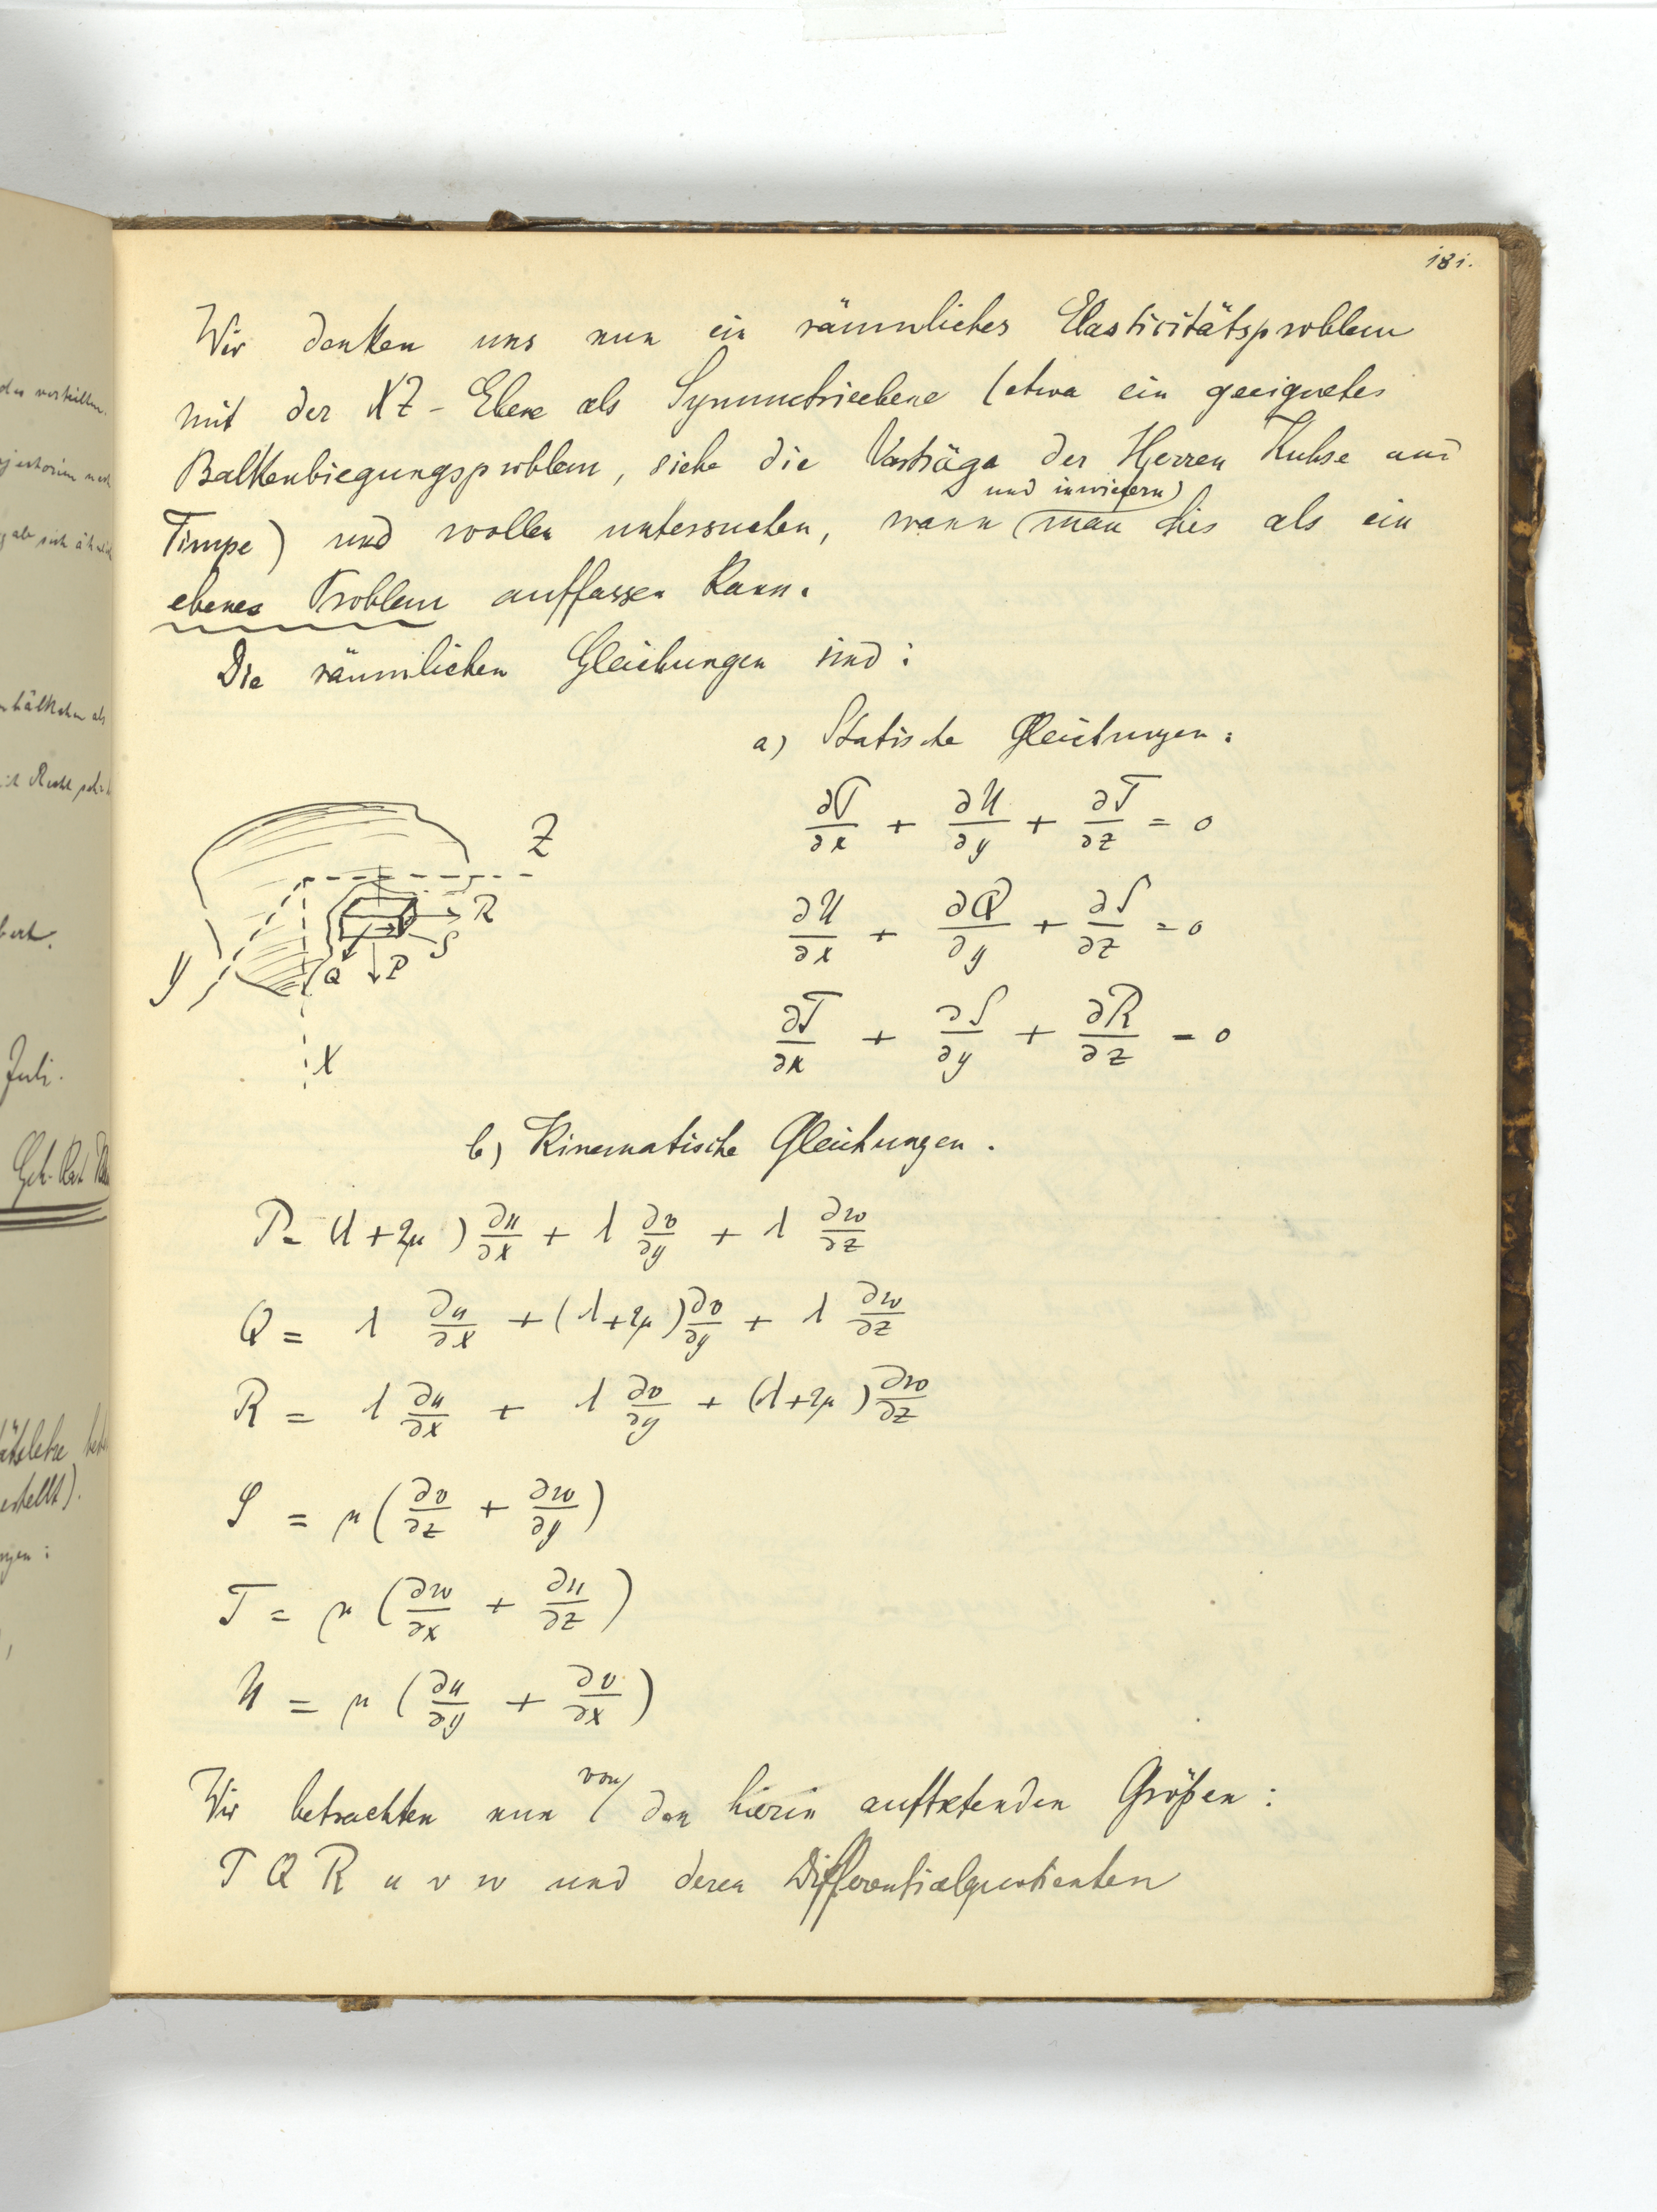 181.
Wir denken uns nun ein räumliches Elasticitätsproblem
mit der XZ-Ebene als Symmetrieebene (etwa ein geeignetes
Balkenbiegungsproblem, siehe die Vorträge der Herren Kuhse und
und inwiefern
Timpe) und wollen untersuchen, wann man dies als ein
ebenes Problem auffassen kann.
Die räumlichen Gleichungen sind:
a) Statische Gleichungen:
∂P/∂x + ∂U/∂y + ∂T/∂z = 0
∂U/∂x + ∂Q/∂y + ∂S/∂z = 0
∂T/∂x + ∂S/∂y + ∂R/∂z = 0
Z
R
S
Y
Q P
X
b) Kinematische Gleichungen.
P = (λ+2μ) ∂u/∂x + λ ∂v/∂y + λ ∂w/∂z
Q = λ ∂u/∂x + (λ+2μ) ∂v/∂y + λ ∂w/∂z
R = λ ∂u/∂x + λ ∂v/∂y + (λ+2μ) ∂w/∂z
S = μ (∂v/∂z + ∂w/∂y)
T = μ (∂w/∂x + ∂u/∂z)
U = μ (∂u/∂y + ∂v/∂x)
von
Wir betrachten nun den hierin auftretenden Größen:
P Q R u v w und deren Differentialquotienten
Juli.